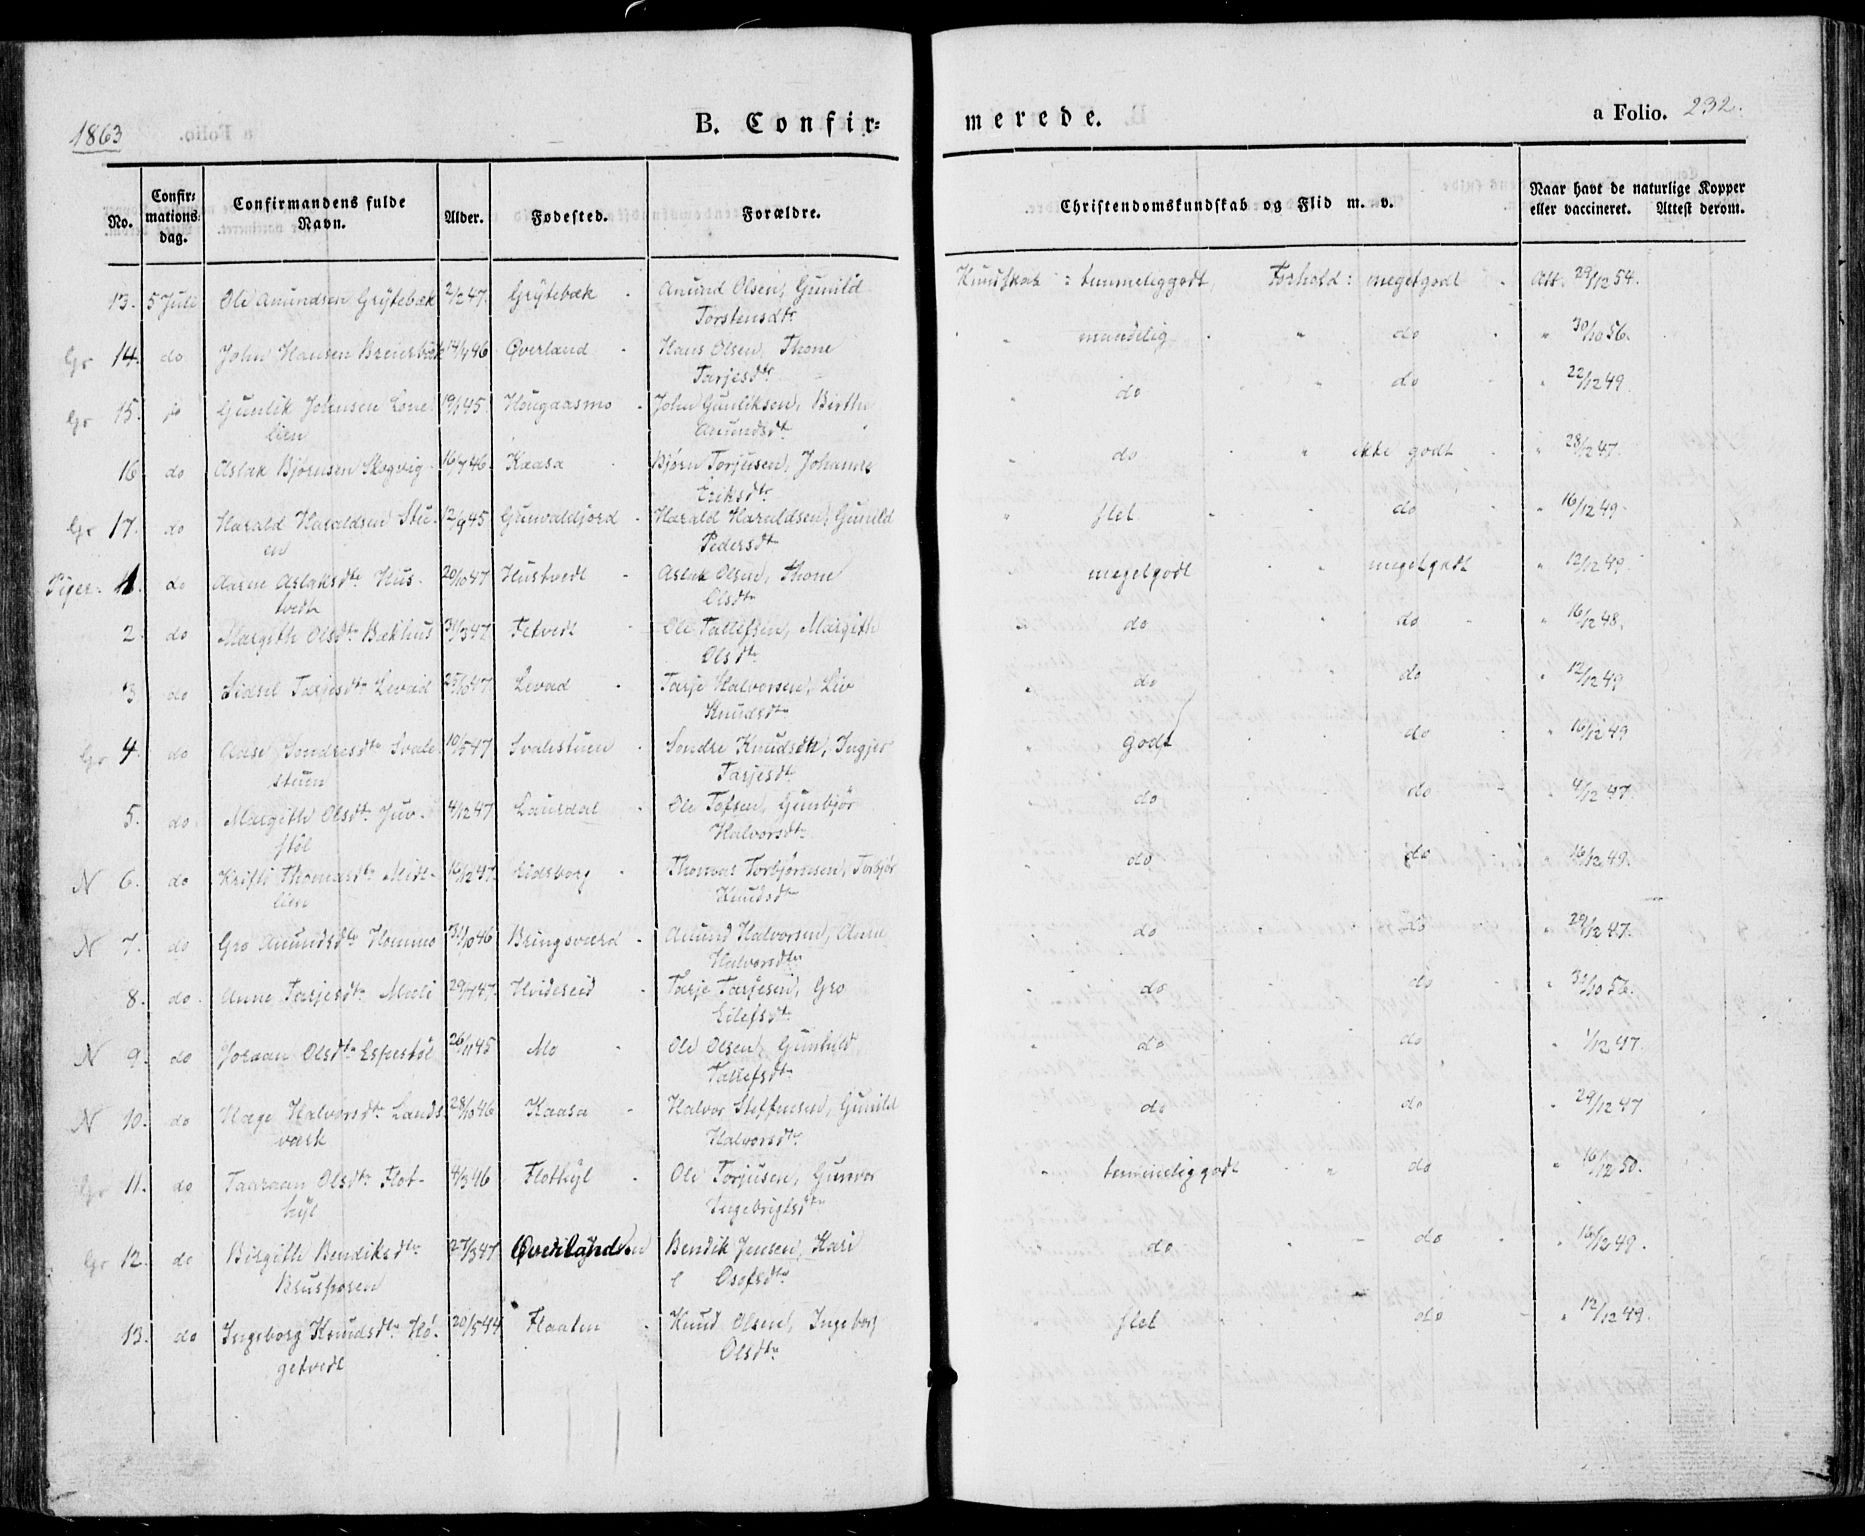 1863
B. Confir=
merede.
a Folio. 232.
No.
Confir=
mations=
dag.
Confirmandens fulde
Navn.
Alder.
Fødested.
Forældre.
Christendomskundskab og Flid m. v.
Naar havt de naturlige Kopper
eller vaccineret. Attest derom.
13. 5 Juli Ole Anundsen Grytebæk 2/2 47. Grytebæk Anund Olsen, Gunild Kundskab : temmeliggodt, Forhold : megetgodt Att. 29/12 54.
Torstensdtr
Gr 14. do John Hansen 14/4 46 Øverland Hans Olsen, Thone " maadelig " do " 30/10 56.
Tarjesdtr
Gr 15. Gunlik Johnsen Lone= 19/1 45. Hougaasmo John Gunliksen, Birthe " do " do " 22/12 49.
lien Anundsdtr
16. do Aslak Bjørnsen Skogvig 16/7 46. Kaasa Bjørn Torjusen, Johanne " do " ikke godt " 28/12 47.
Eriksdtr
Gr 17. do Harald Haraldsen Stu- 12/9 45. Gunvaldjord Harald Haraldsen, Gunild " slet " do " 16/12 49.
en Pedersdtr
Piger. 1. do Aasne Aslaksdtr Hus- 20/10 47 Hustvedt Aslak Olsen, Thone megetgodt " megetgodt " 12/12 49.
tvedt Olsdtr
2. do Margith Olsdtr Bækhus 31/3 47. Fetvedt Ole Tallefsen, Margith " do " do " 16/12 48.
Olsdtr
3 do Sidsel Tarjesdtr Levad 25/10 47 Levad Tarje Halvorsen, Liv " do " do " 12/12 49
Knudsdtr
Gr 4. do Aase Sondresdtr Svale- 10/5 47 Svalestuen Sondre Knudsen, Ingjer " godt do " 16/12 49
stuen Tarjesdtr
5. do Margith Olsdtr Juv- 4/12 47 Laurdal Ole Tofsen, Gunbjør do " do " 4/12 47.
støl Halvorsdtr
N 6. do Kristi Thomasdtr Midt- 16/12 47. Eidsborg Thomas Torbjørnsen, Torbjør " do " do " 16/12 49.
lien Knudsdtr
N 7. do Gro Anundsdtr Hommo 31/10 46 Bringsværd Anund Halvorsen, Aase do " do " 29/12 47.
Halvorsdtr
8. do Anne Tarjesdtr Moli 29/7 47. Hvideseid Tarje Tarjesen, Gro do do " 31/10 56.
Eilefsdtr
N 9. do Joraan Olsdtr Espestøl 26/11 45 Mo Ole Olsen, Gunhild do do " 1/12 47.
Tallefsdtr
N 10. do Hæge Halvorsdtr Lands- 28/10 46 Kaasa Halvor Steffensen, Gunild do do " 29/12 47
værk Halvorsdtr
Gr 11. do Taaraan Olsdtr Flot- 4/3 46 Flothyl Ole Torjusen, Gunvor " temmeliggodt " do " 16/12 50.
hyl Ingebrigtsdtr
Gr 12. do Birgith Bendiksdtr 27/3 47. Øverland Bendik Jensen, Kari do do " 16/12 49.
Brusporen Osofsdtr
13. do Ingeborg Knudsdtr Hø- 20/5 44 Flaaten Knud Olsen, Ingeborg " slet do " 12/12 49.
getvedt Olsdtr